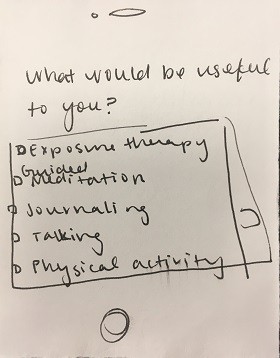 What would be useful
to you?
Exposure therapy
Guided
Meditation
Journaling
Talking
Physical activity